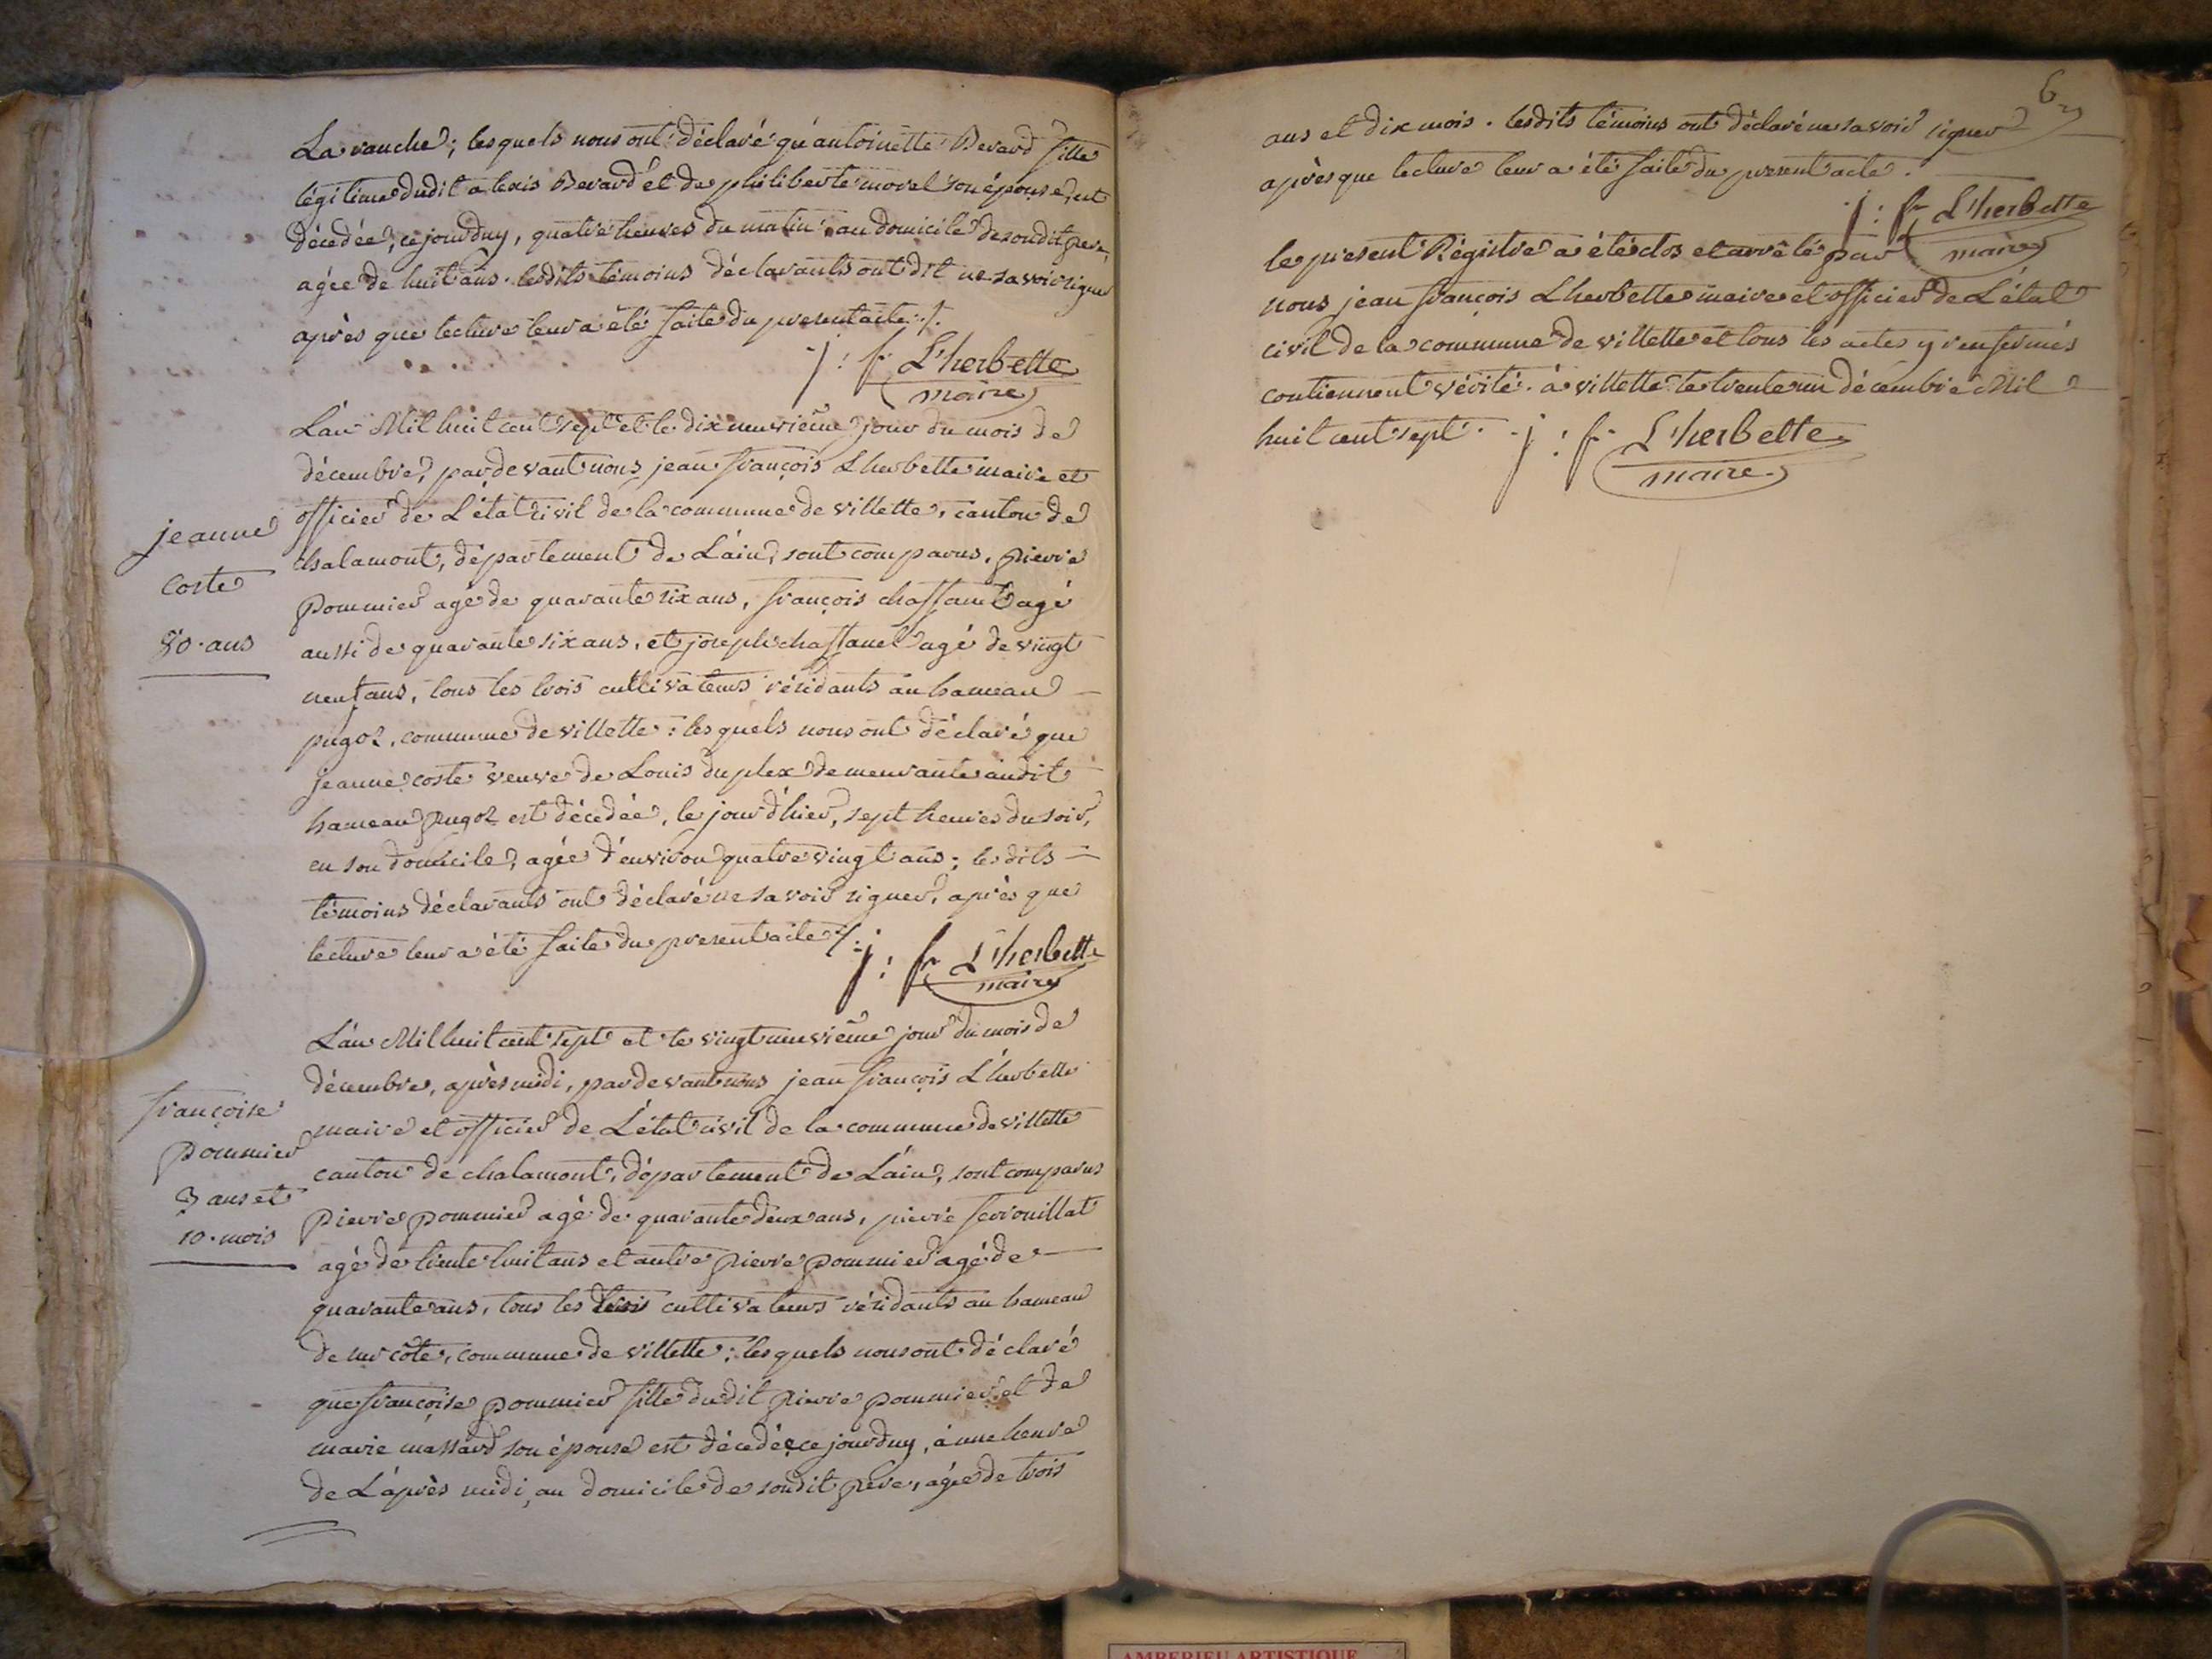 La ranche ; lesquels nous ont déclaré qu'antoinette Berard fille
légitime dudit alexis Berard et de philiberte morel son épouse, est
décédée, ce jourd'uy, quatre heures du matin au domicile de sondit pere,
agée de huit ans. lesdits témoins déclarants ont dit ne savoir signer
après que lecture leur a été faite du present acte ./.
j : f L'herbette
maire
jeanne
coste
80 . ans
L'an Mil huit cent sept et le dix neuvième jour du mois de
décembre, par devant nous jean françois Lherbette maire et
officier de L'état civil de la commune de villette, canton de
chalamont, département de L'ain, sont comparus, pierre
pommier agé de quarante six ans, françois chastanel agé
aussi de quarante six ans, et joseph chastanel agé de vingt
neuf ans, tous les trois cultivateurs résidants au hameau
pugoz, commune de villette : lesquels nous ont déclaré que
jeanne coste veuve de Louis duplex demeurante audit
hameau pugoz est décédée, le jour d'hier, sept heures du soir,
en son domicile, agée d'environ quatre vingt ans ; lesdits
témoins déclarants ont déclaré ne savoir signer, après que
lecture leur a été faite du present acte ./.
j : f L'herbette
maire
françoise
pommier
3 ans et
10 . mois
L'an Mil huit cent sept et le vingt neuvième jour du mois de
décembre, après midi, par devant nous jean françois L'herbette
maire et officier de L'état civil de la commune de villette
canton de chalamont, département de L'ain, sont comparus
pierre pommier agé de quarante deux ans, pierre ferrouillat
agé de trente huit ans et autre pierre pommier agé de
quarante ans, tous les trois cultivateurs résidants au hameau
de sur côte, commune de villette ; lesquels nous ont déclaré
que françoise pommier fille dudit pierre pommier et de
marie massard son épouse est décédée ce jourd'uy, à une heure
de L'après midi, au domicile de sondit père, agée de trois
ans et dix mois . lesdits témoins ont déclaré ne savoir signer
après que lecture leur a été faite du present acte .
j : f L'herbette
maire
le present Régistre a été clos et arrêté par
nous jean françois Lherbette maire et officier de L'état
civil de la commune de villette et tous les actes y renfermés
contiennent vérité . à villette le trente un décembre Mil
huit cent sept . j : f L'herbette
maire
AMBERIEU ARTISTIQUE